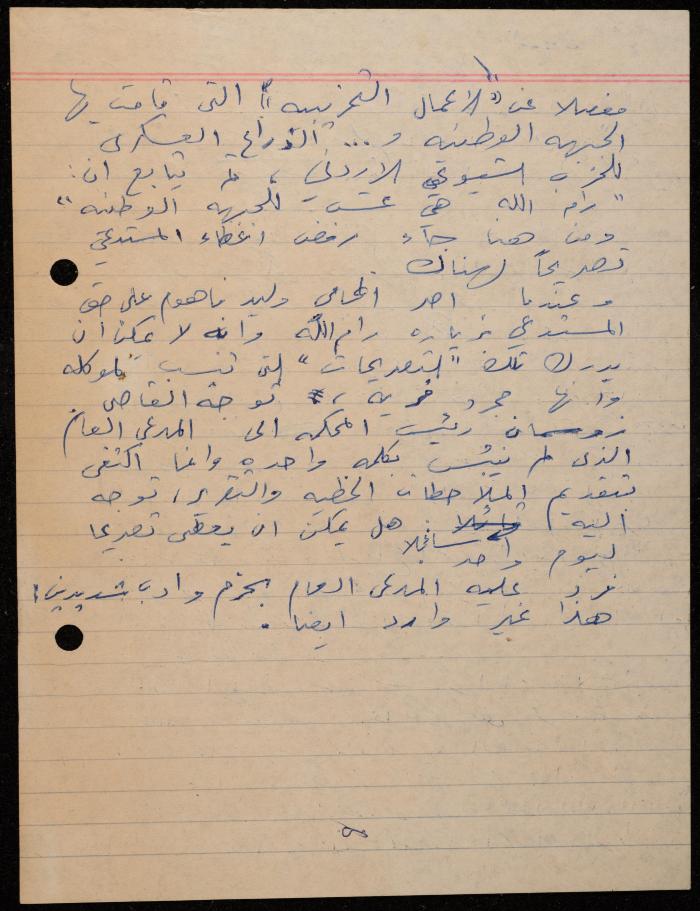 مفصلا عن "الاعمال التخريبية" التي قامت بها
الجبهه الوطنيه و... الذراع العسكري
للحزب الشيوعي الاردني، ثم يتابع ان:
"رام الله هي عش للجبهه الوطنيه"
ومن هنا جاء رفض اعطاء المستدعي
تصريحاً لهناك
وعندما اصر المحامي وليد فاهوم على حق
المستدعي بزياره رام الله وانه لا يمكن ان
يدرك تلك "التصريحات" التي تنسب لموكله
وانها مجرد فريه، توجه القاضي
رئيس المحكمه الى المدعي العام
الذي لم ينبس بكلمه واحده وانما اكتفى
بتقديم الملاحظات الخطيه والتقرير، توجه
اليه سائلا هل يمكن ان يعطى تصريحا
ليوم واحد
فرد عليه المدعي العام بحزم وادب شديدين:
هذا غير وارد ايضا.